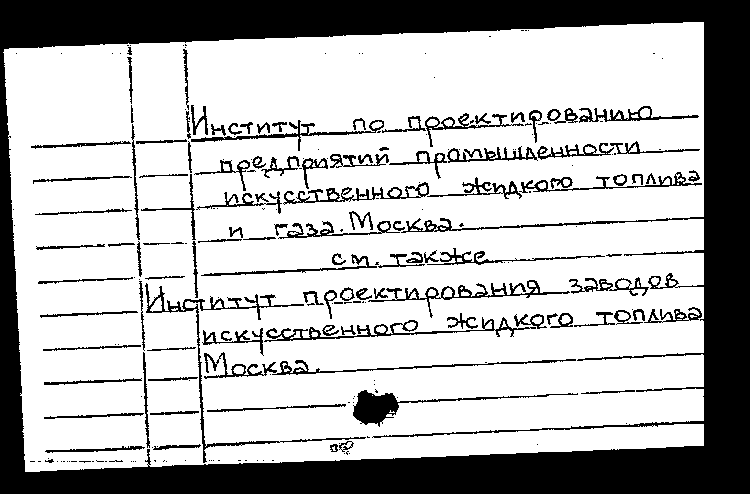 Институт по проектированию
предприятий промышленности
искусственного жидкого топлива
и газа. Москва.
см. также
Институт проектирования заводов
искусственного жидкого топлива
Москва.